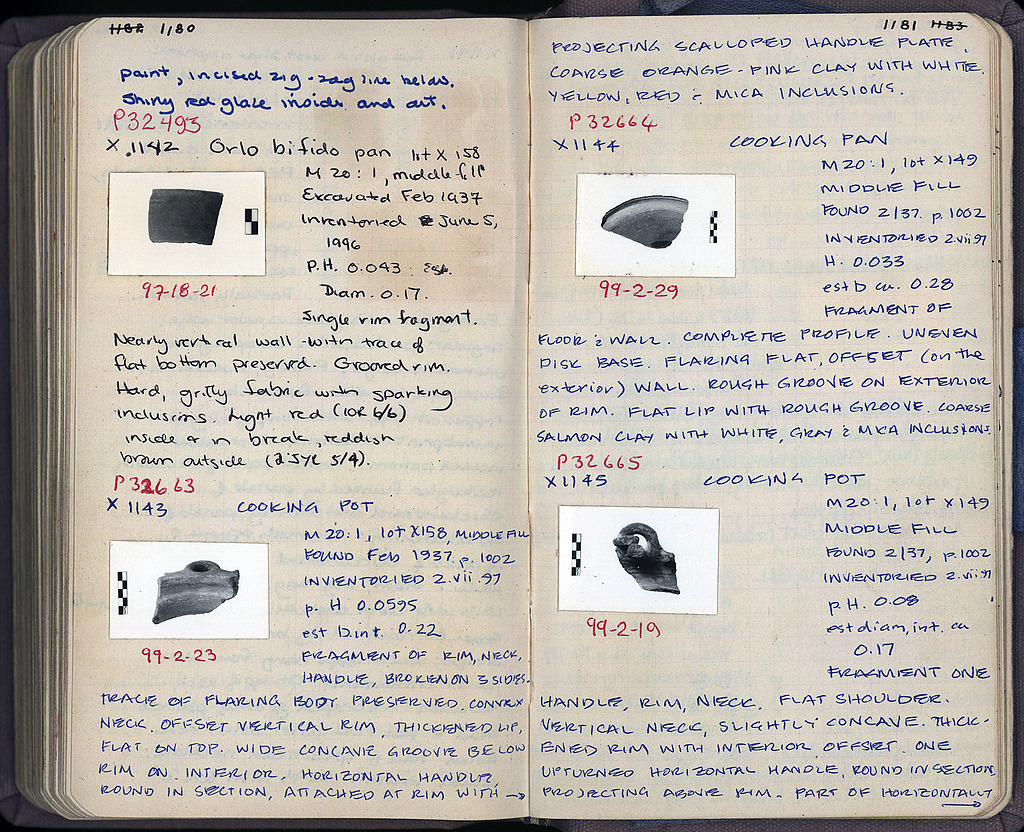 1182 1180
paint, incised zig-zag line below.
Shiny red glaze inside and out.
P32493
X.1142 Orlo bifido pan lot X 158
M 20:1, middle fill
Excavated Feb 1937
Inventoried June 5,
1996
P.H. 0.043 Est.
Diam. 0.17.
Single rim fragment.
97-18-21
Nearly vertical wall with trace of
flat bottom preserved. Grooved rim.
Hard, gritty fabric with sparking
inclusions. Light red (10R 6/6)
inside & in break, reddish
brown outside (2.5YR 5/4).
P32663
X 1143 COOKING POT
M 20:1, lot X158, MIDDLE FILL
FOUND Feb 1937. p. 1002
INVENTORIED 2.vii.97
p. H 0.0595
est D.int. 0.22
99-2-23
FRAGMENT OF RIM, NECK,
HANDLE, BROKEN ON 3 SIDES.
TRACE OF FLARING BODY PRESERVED. CONVEX
NECK. OFFSET VERTICAL RIM, THICKENED LIP,
FLAT ON TOP. WIDE CONCAVE GROOVE BELOW
RIM ON INTERIOR. HORIZONTAL HANDLE,
ROUND IN SECTION, ATTACHED AT RIM WITH →
1181 1183
PROJECTING SCALLOPED HANDLE PLATE.
COARSE ORANGE-PINK CLAY WITH WHITE,
YELLOW, RED & MICA INCLUSIONS.
P32664
X1144 COOKING PAN
M 20:1, lot X149
MIDDLE FILL
FOUND 2/37. p. 1002
INVENTORIED 2.vii.97
H. 0.033
est D ca. 0.28
99-2-29
FRAGMENT OF
FLOOR & WALL. COMPLETE PROFILE. UNEVEN
DISK BASE. FLARING FLAT, OFFSET (on the
exterior) WALL. ROUGH GROOVE ON EXTERIOR
OF RIM. FLAT LIP WITH ROUGH GROOVE. COARSE
SALMON CLAY WITH WHITE, GRAY & MICA INCLUSIONS.
P32665
X1145 COOKING POT
M20:1, lot X149
MIDDLE FILL
FOUND 2/37, p.1002
INVENTORIED 2.vii.97
p H. 0.08
est diam, int. ca
0.17
99-2-19
FRAGMENT ONE
HANDLE, RIM, NECK. FLAT SHOULDER.
VERTICAL NECK, SLIGHTLY CONCAVE. THICK-
ENED RIM WITH INTERIOR OFFSET. ONE
UPTURNED HORIZONTAL HANDLE, ROUND IN SECTION,
PROJECTING ABOVE RIM. PART OF HORIZONTALLY
→